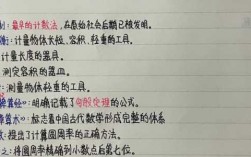 制: 最早的计数法,在原始社会后期已被发明。
衡: 计量物体长短、容积、轻重的工具。
计量长度的器具。
测定容积的器皿。
测量物体轻重的工具。
算经》: 明确记载了勾股定理的公式。
算术》: 标志着中国古代数学形成完整的体系
提出了计算圆周率的正确方法。
之: 将圆周率精确到小数点后第七位。